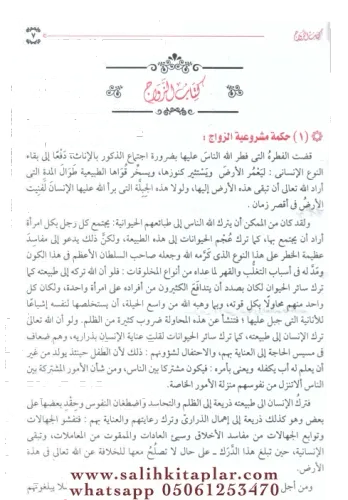 كتاب الزواج
٧
كتاب الزواج
(١) حكمة مشروعية الزواج :
قضت الفطرة التى فطر الله الناس عليها بضرورة اجتماع الذكور بالإناث؛ دفعًا إلى بقاء
النوع الإنسانى؛ ليعمُر الأرض ويستثير كنوزها، ويسخِّر قُواها الطبيعية طوال المدة التى
أراد الله تعالى أن تبقى هذه الأرض إليها، ولولا هذه الجِبِلَّة التى برأ الله عليها الإنسانَ لَفَنِيت
الأرضُ فى أقصر زمان .
ولقد كان من الممكن أن يترك الله الناس إلى طبائعهم الحيوانية: يجتمع كل رجل بكل امرأة
أراد أن يجتمع بها، كما ترك عُجْم الحيوانات إلى هذه الطبيعة، ولكنَّ ذلك يدعو إلى مفاسدَ
عظيمة الخطر على هذا النوع الذى كرَّمه الله وجعله صاحب السلطان الأعظم فى هذا الكون
ومَدَّ له فى أسباب التغلُّب والقهر لما عداه من أنواع المخلوقات : فلو أن الله تركه إلى طبيعته كما
ترك سائر الحيوان لكان بصدد أن يتدافع الكثيرون من أفراده على امرأة واحدة، ولكان كل
واحد منهم محاولًا بكل قوته، وبما وهبه الله من واسع الحيلة، أن يستخلصها لنفسه إشباعًا
للأنانية التى جبل عليها ؛ فتنشأ عن هذه المحاولة ضروب كثيرة من الظلم. ولو أن الله تعالى
ترك الإنسان إلى طبيعته، كما ترك سائر الحيوانات لقلَّت عناية الإنسان بذراريه، وهم ضعاف
فى مسيس الحاجة إلى العناية بهم، والاحتفال لشؤونهم : ذلك لأن الطفل حينئذ يولد من غير
أن يعلم له أب يكفله ويعنى بأمره : فيكون مشتركا بين الناس، ومن شأن الأمور المشتركة بين
الناس ألا تنزل من نفوسهم منزلة الأمور الخاصة.
فتركُ الإنسان إلى طبيعته ذريعة إلى الظلم والتحاسد واضطغان النفوس وحِقْد بعضها على
بعض وهو كذلك ذريعة إلى إهمال الذرارىّ وترك رعايتهم والعناية بهم : فتفشو الجهالات
وتوابع الجهالات من مفاسد الأخلاق وسيئ العادات والممقوت من المعاملات، وتبقى
الإنسانية، حين تبلغ هذا الدَّرَك ــ على حال لا تصلح معها للخلافة عن الله تعالى فى هذه
الأرض.
www.salihkitaplar.com
whatsapp 05061253470
ومن أجل